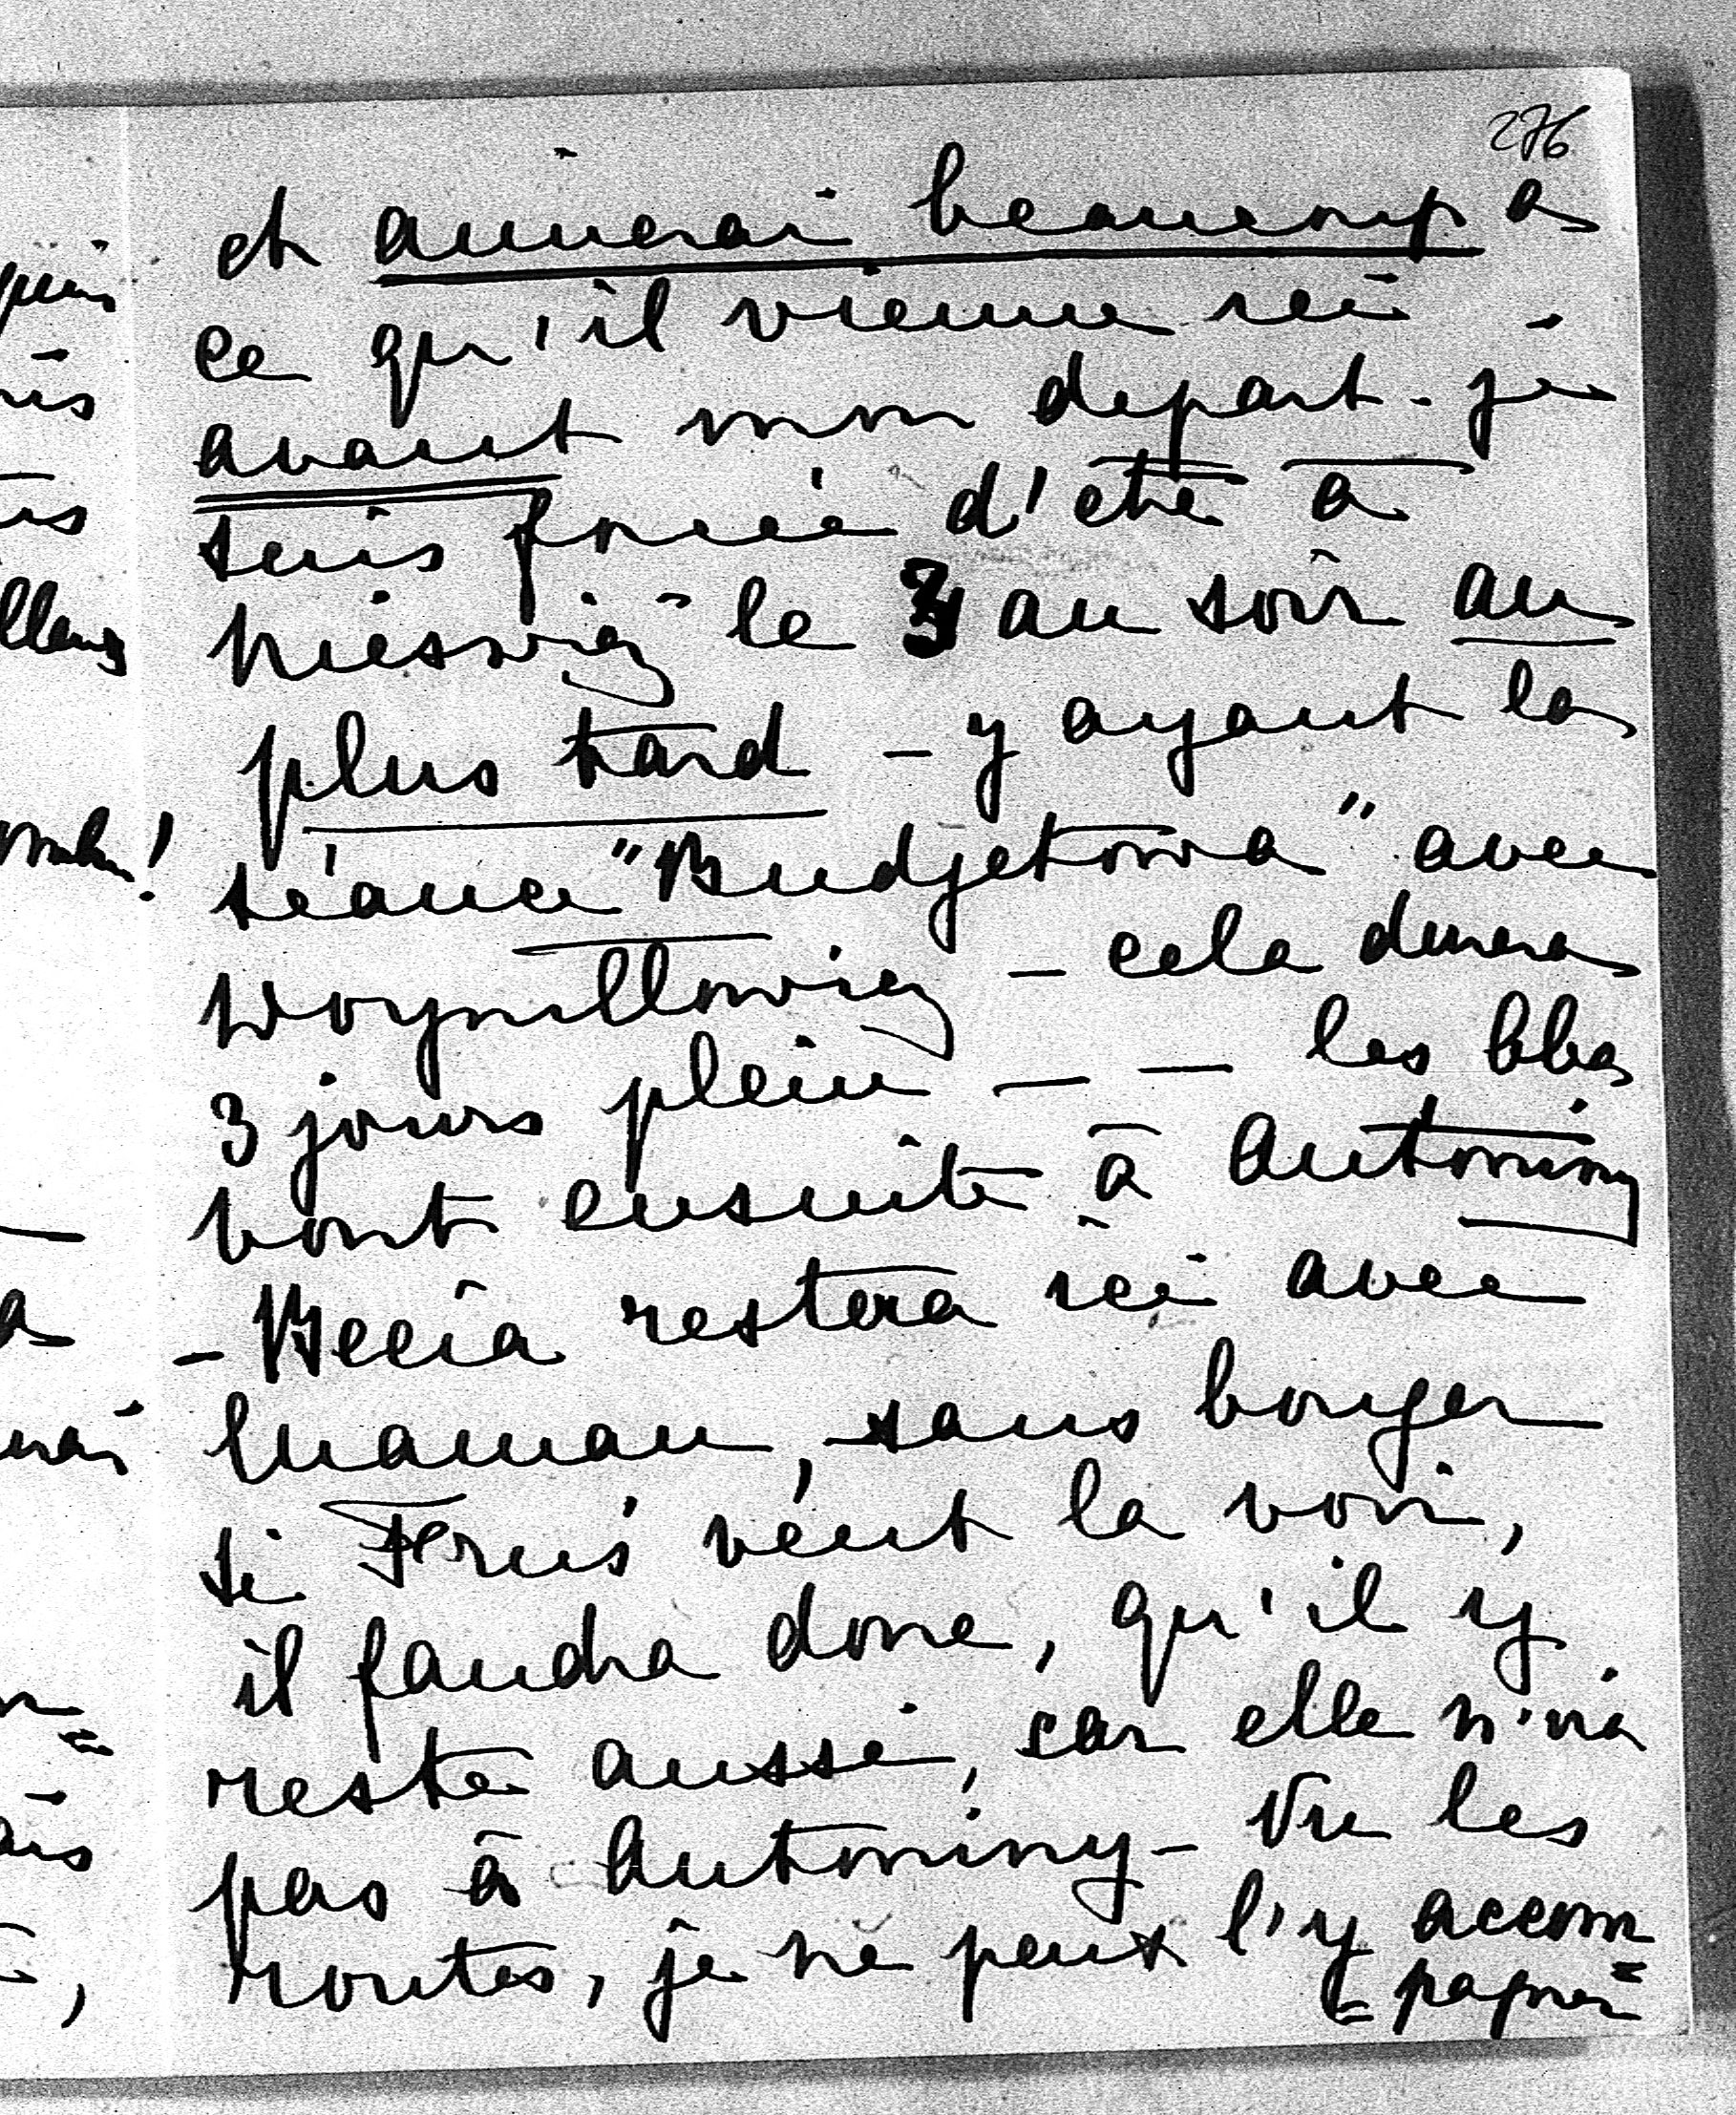 276
et aimerai beaucoup à
ce qu'il vienne ici
avant mon depart. je
suis forcée d'etre à
Nieswiez le 3 au soir au
plus tard – y ayant la
séance "Budjetowa" avec
Woynillowicz – cela durera
3 jours plein – – les bbes
vont ensuite à Antoniny
– Becia restera ici avec
maman, sans bouger
si veut la voir,
il faudra donc, qu'il y
reste aussi, car elle n'ira
pas à Antoniny – Vu les
routes, je ne peux l'y accom
= pagner =